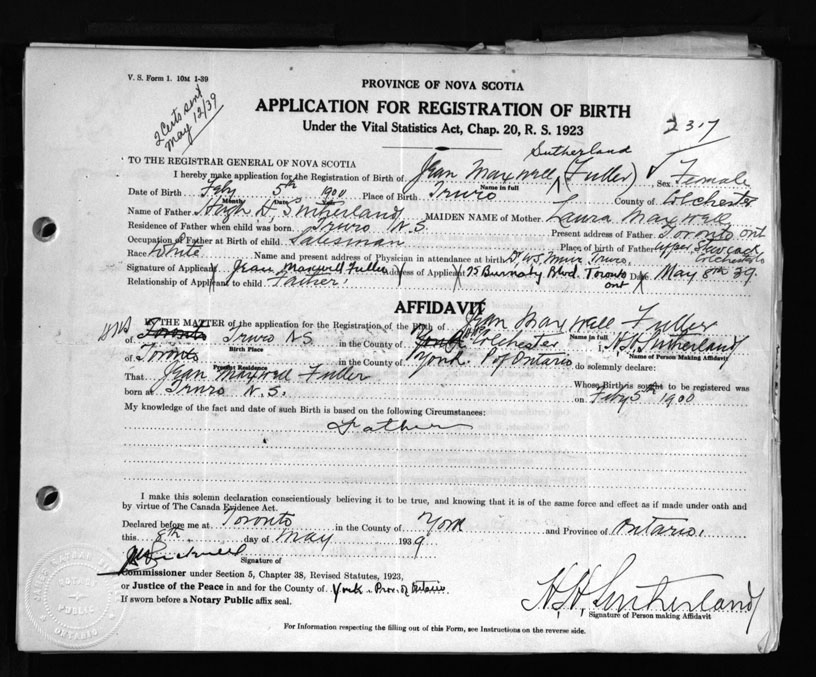 V. S. Form 1. 10M 1-39
2 Certs sent
May 12/39
PROVINCE OF NOVA SCOTIA
APPLICATION FOR REGISTRATION OF BIRTH
Under the Vital Statistics Act, Chap. 20, R. S. 1923
237
TO THE REGISTRAR GENERAL OF NOVA SCOTIA
Sutherland
I hereby make application for the Registration of Birth of Jean Maxwell (Fuller) Sex Female
Name in full
Date of Birth Feby 5th 1900 Place of Birth Truro County of Colchester
Month Date Yr.
Name of Father Hugh H. Sutherland MAIDEN NAME of Mother Laura Maxwell
Residence of Father when child was born Truro N.S. Present address of Father Toronto Ont
Occupation of Father at Birth of child Salesman Place of birth of Father Upper Stewiacke
Colchester Co
Race White Name and present address of Physician in attendance at birth Dr W.S. Muir Truro
Signature of Applicant Jean Maxwell Fuller Address of Applicant 75 Burnaby Blvd. Toronto Ont Date May 8th 39.
Relationship of Applicant to child Father
AFFIDAVIT
IN THE MATTER of the application for the Registration of the Birth of Jean Maxwell Fuller
Name in full
of Toronto Truro N.S. in the County of York Colchester I, H.H. Sutherland
Birth Place Name of Person Making Affidavit
of Toronto in the County of York P of Ontario do solemnly declare:
Present Residence
That Jean Maxwell Fuller Whose Birth is sought to be registered was
born at Truro N.S. on Feby 5th 1900
My knowledge of the fact and date of such Birth is based on the following Circumstances:
Father
I make this solemn declaration conscientiously believing it to be true, and knowing that it is of the same force and effect as if made under oath and
by virtue of The Canada Evidence Act.
Declared before me at Toronto in the County of York and Province of Ontario.
this 8th day of May 1939
Signature of
Commissioner under Section 5, Chapter 38, Revised Statutes, 1923,
or Justice of the Peace in and for the County of York Prov. of Ontario
If sworn before a Notary Public affix seal.
H.H. Sutherland
Signature of Person making Affidavit
For Information respecting the filling out of this Form, see Instructions on the reverse side.
NOTARY
PUBLIC
ONTARIO